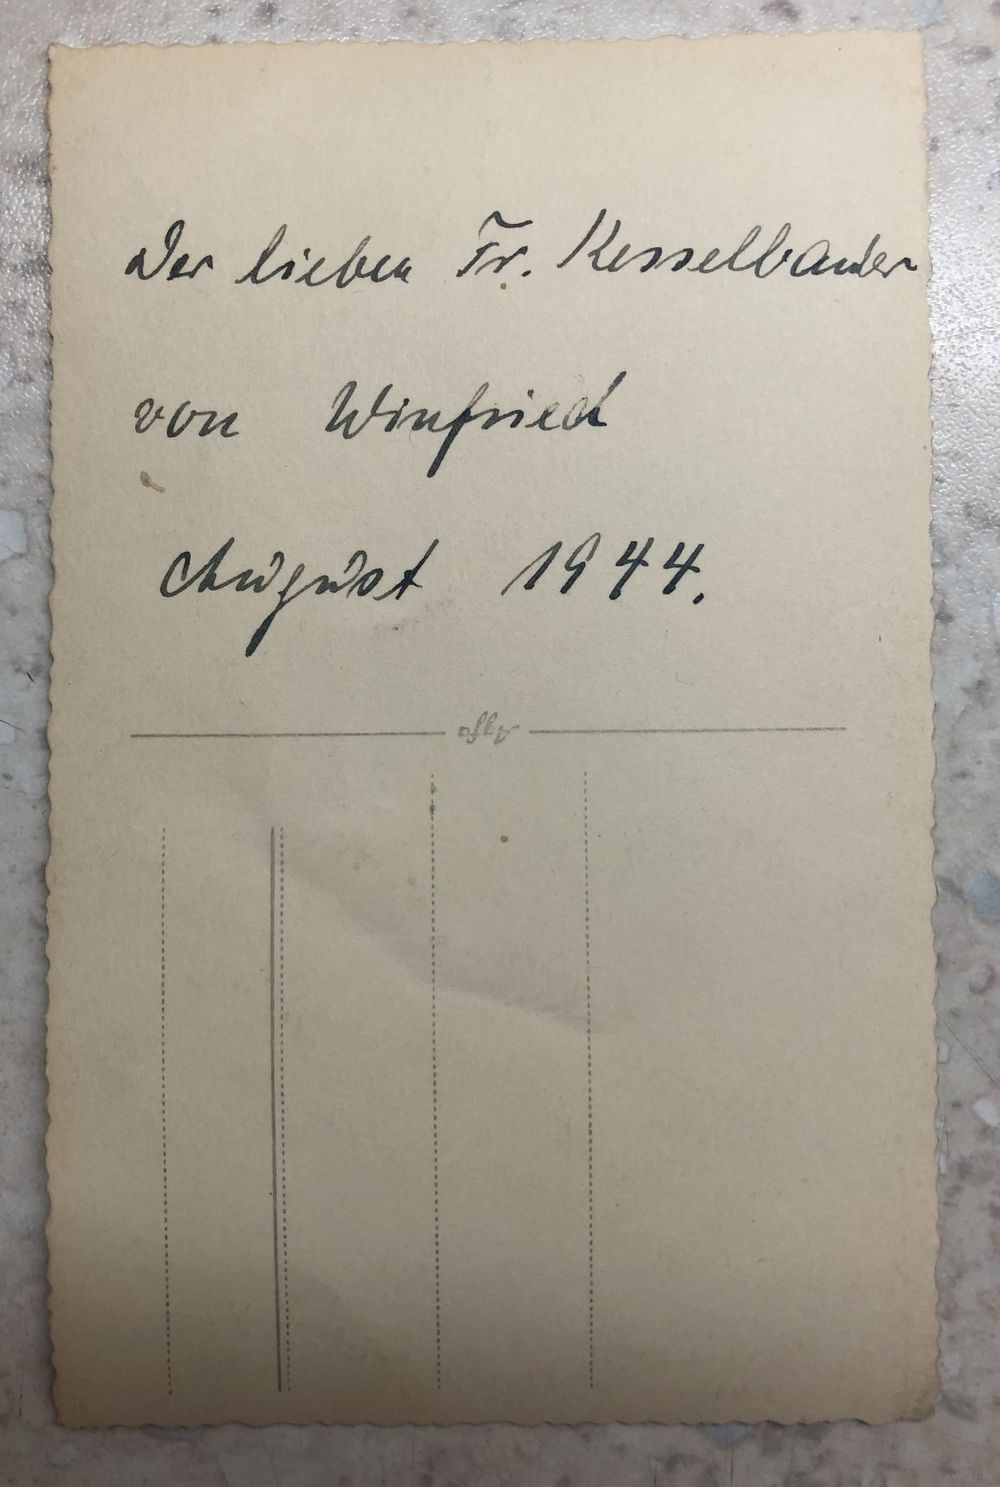 Der lieben Fr. Kesselbauer
von Winfried
August 1944.
Agfa